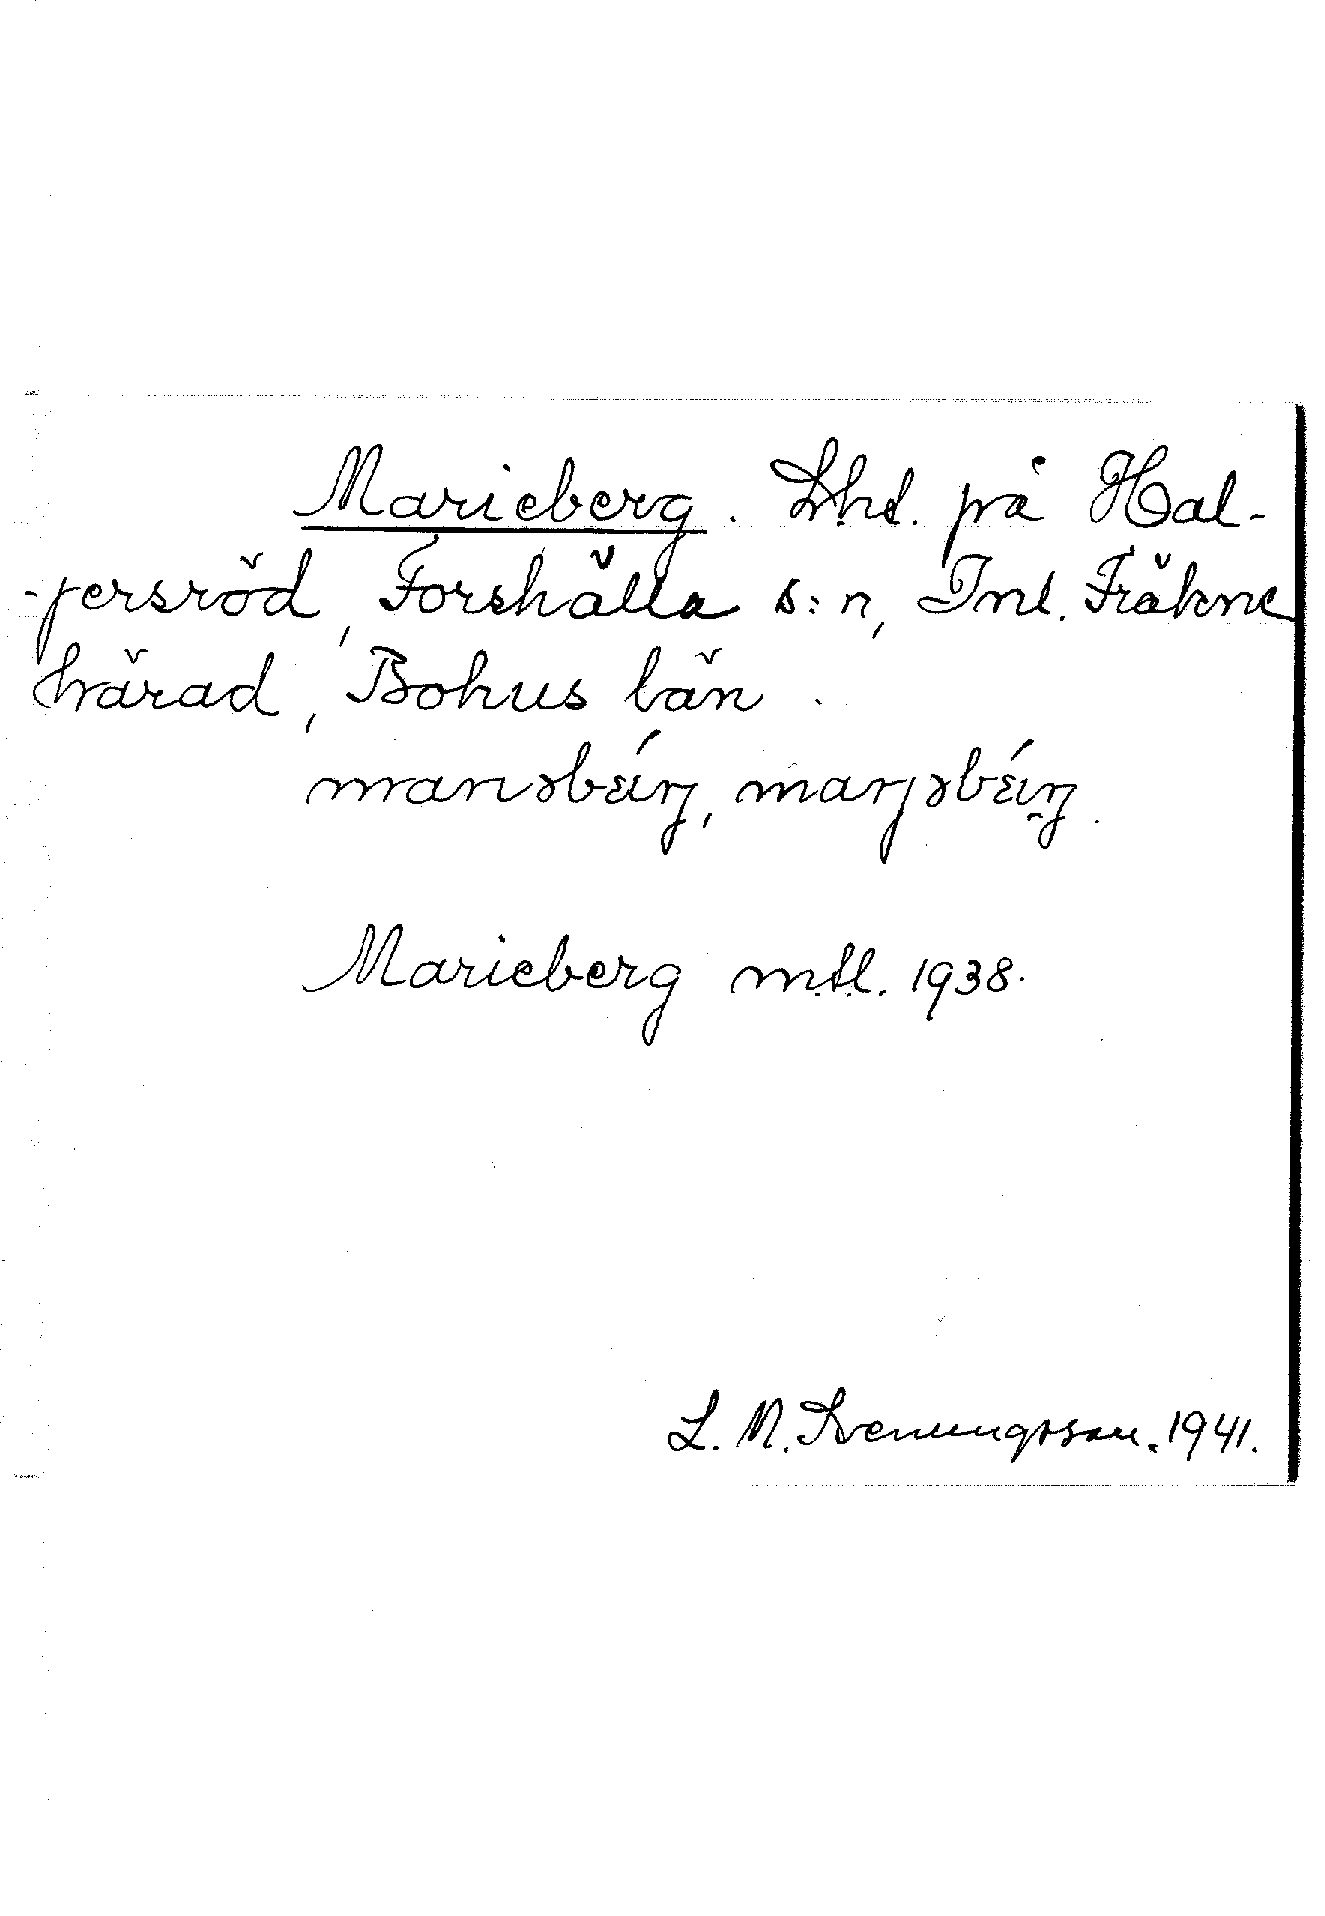 Marieberg. Lhd. på Hal-
-persröd, Forshälla s:n, Inl. Fräkne
härad, Bohus län.
Marieberg mtl. 1938.
L. N. Svenungsson. 1941.